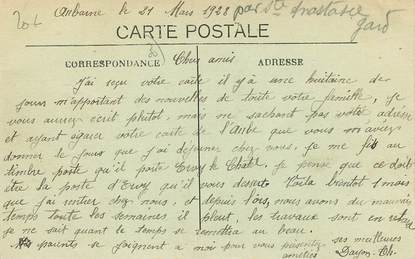 Aubaine le 21 Mars 1928 par Ste Anastasie
Gard
CARTE POSTALE
CORRESPONDANCE ADRESSE
Chers amis
J'ai reçu votre carte il y a une huitaine de
jours m'apportant des nouvelles de toute votre famille, je
vous aurez écrit plutot, mais ne sachant pas votre adresse
et ayant égarer votre carte de l'Aube que vous m'aviez
donner le jour que j'ai déjeuner chez vous. je me fis au
timbre poste qu'il porte Ervy le Chatel. Je pense que ce doit
être la poste d'Ervy qu'il vous dessert. Voila bientot 1 mois
que j'ai rentrer chez nous et depuis l'ors, nous avons du mauvais
temps toute les semaines il pleut, les travaux sont en retard
je ne sait quant le temps se remettra au beau.
Mes parents se joignent a moi pour vous présenter ses meilleures
amitiés